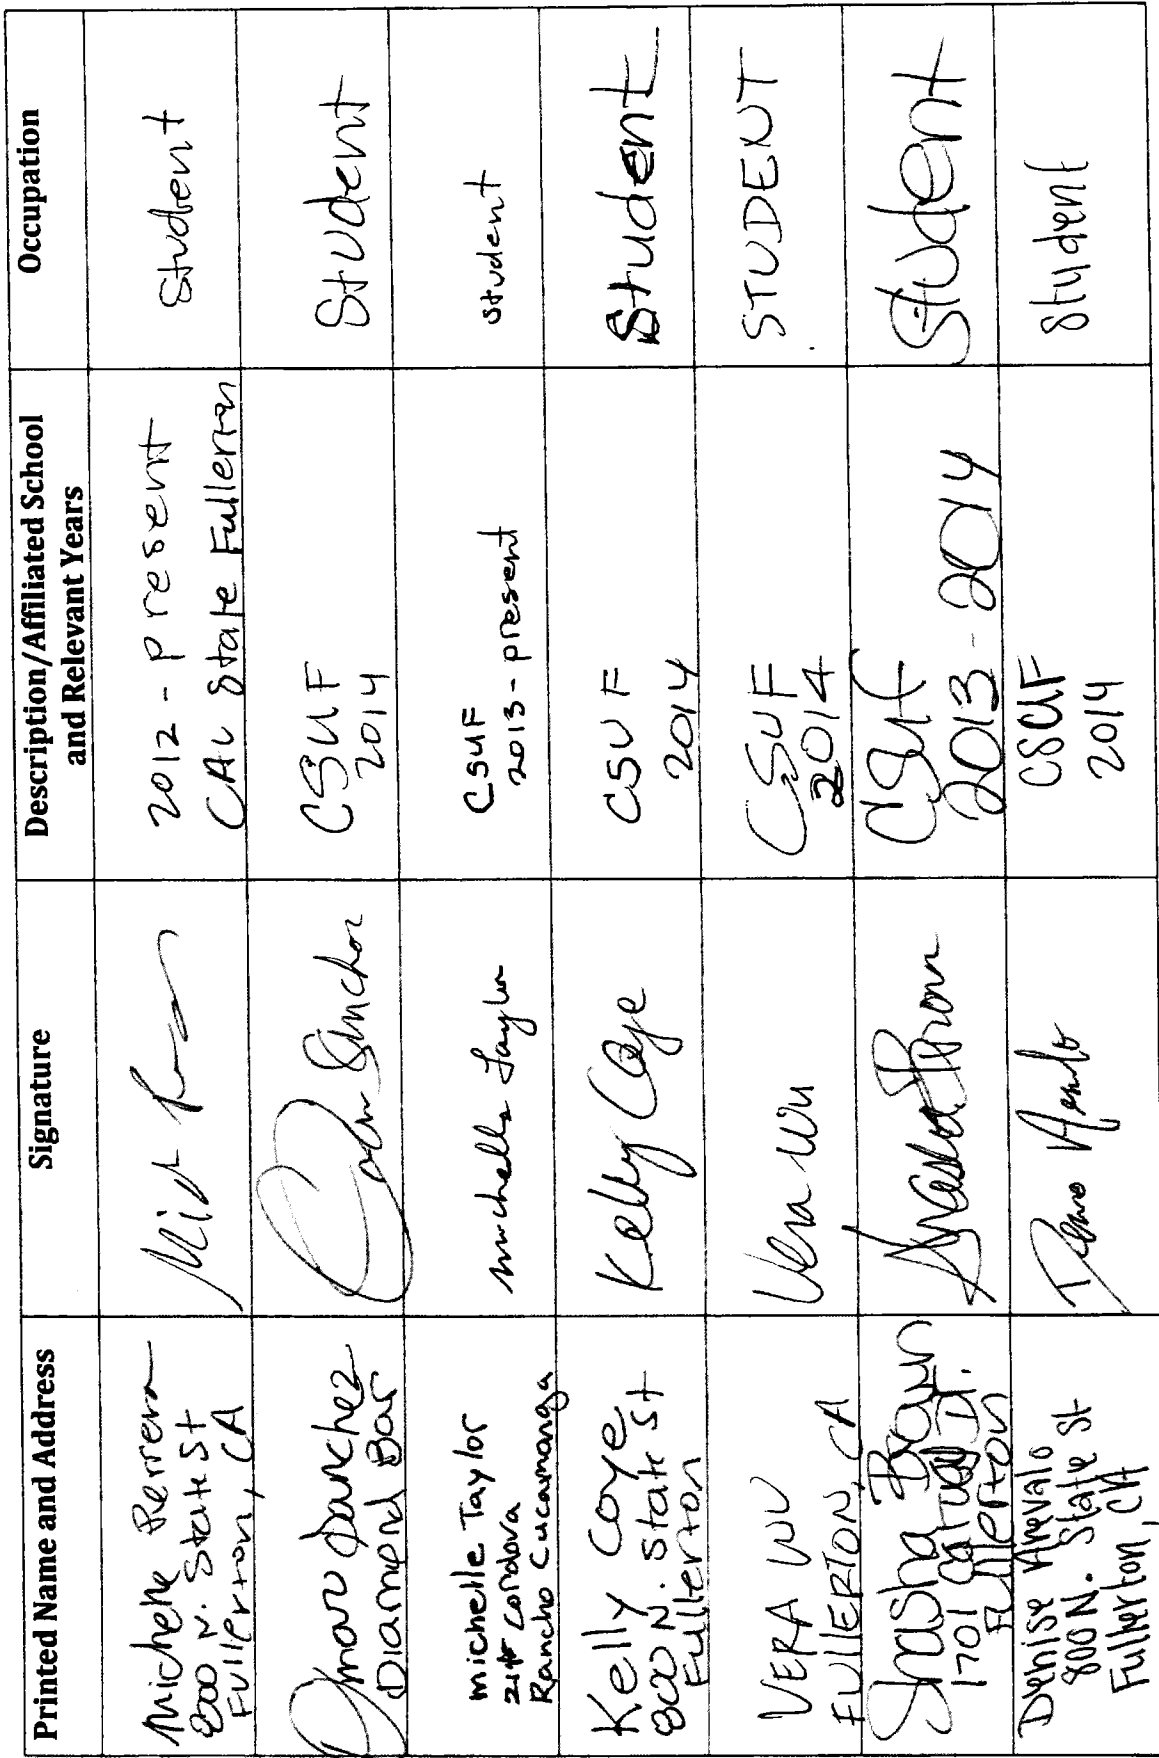 Printed Name and Address
Signature
Description/Affiliated School
and Relevant Years
Occupation
Michelle Perrera
800 N. State St
Fullerton, CA
2012 - present
CAL State Fullerton
Student
Omar Sanchez
Diamond Bar
CSUF
2014
Student
michelle Taylor
cordova
Rancho Cucamonga
michelle Taylor
CSUF
2013 - present
student
Kelly Coye
800 N. State St
Fullerton
Kelly Coye
CSUF
2014
Student
VERA WU
FULLERTON, CA
Vera Wu
CSUF
2014
STUDENT
Shasha Brown
1701
Fullerton
CSUF
2013 - 2014
Student
Denise Arevalo
800 N. State St
Fullerton, CA
CSUF
2014
Student